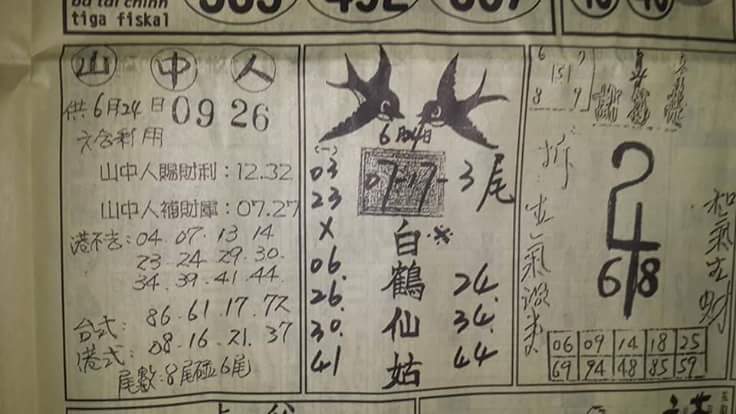 ba tai chinh
tiga fiskal
山 中 人
供6月24日 09 26
六合利用
山中人賜財利：12.32
山中人補財庫：07.27
港不去：04. 07. 13. 14
23. 24. 29. 30.
34. 39. 41. 44.
台式：86. 61. 17. 72
港式：08. 16. 21. 37
尾數：8尾碰6尾
6月24日
(一)
03
23
X
06.
26.
30.
41
07-17-3尾
白
鶴
仙
姑
24.
34.
44
6 7
151
8 9
拆
2
4
6 8
和氣生財
06 09 14 18 25
69 94 48 85 59